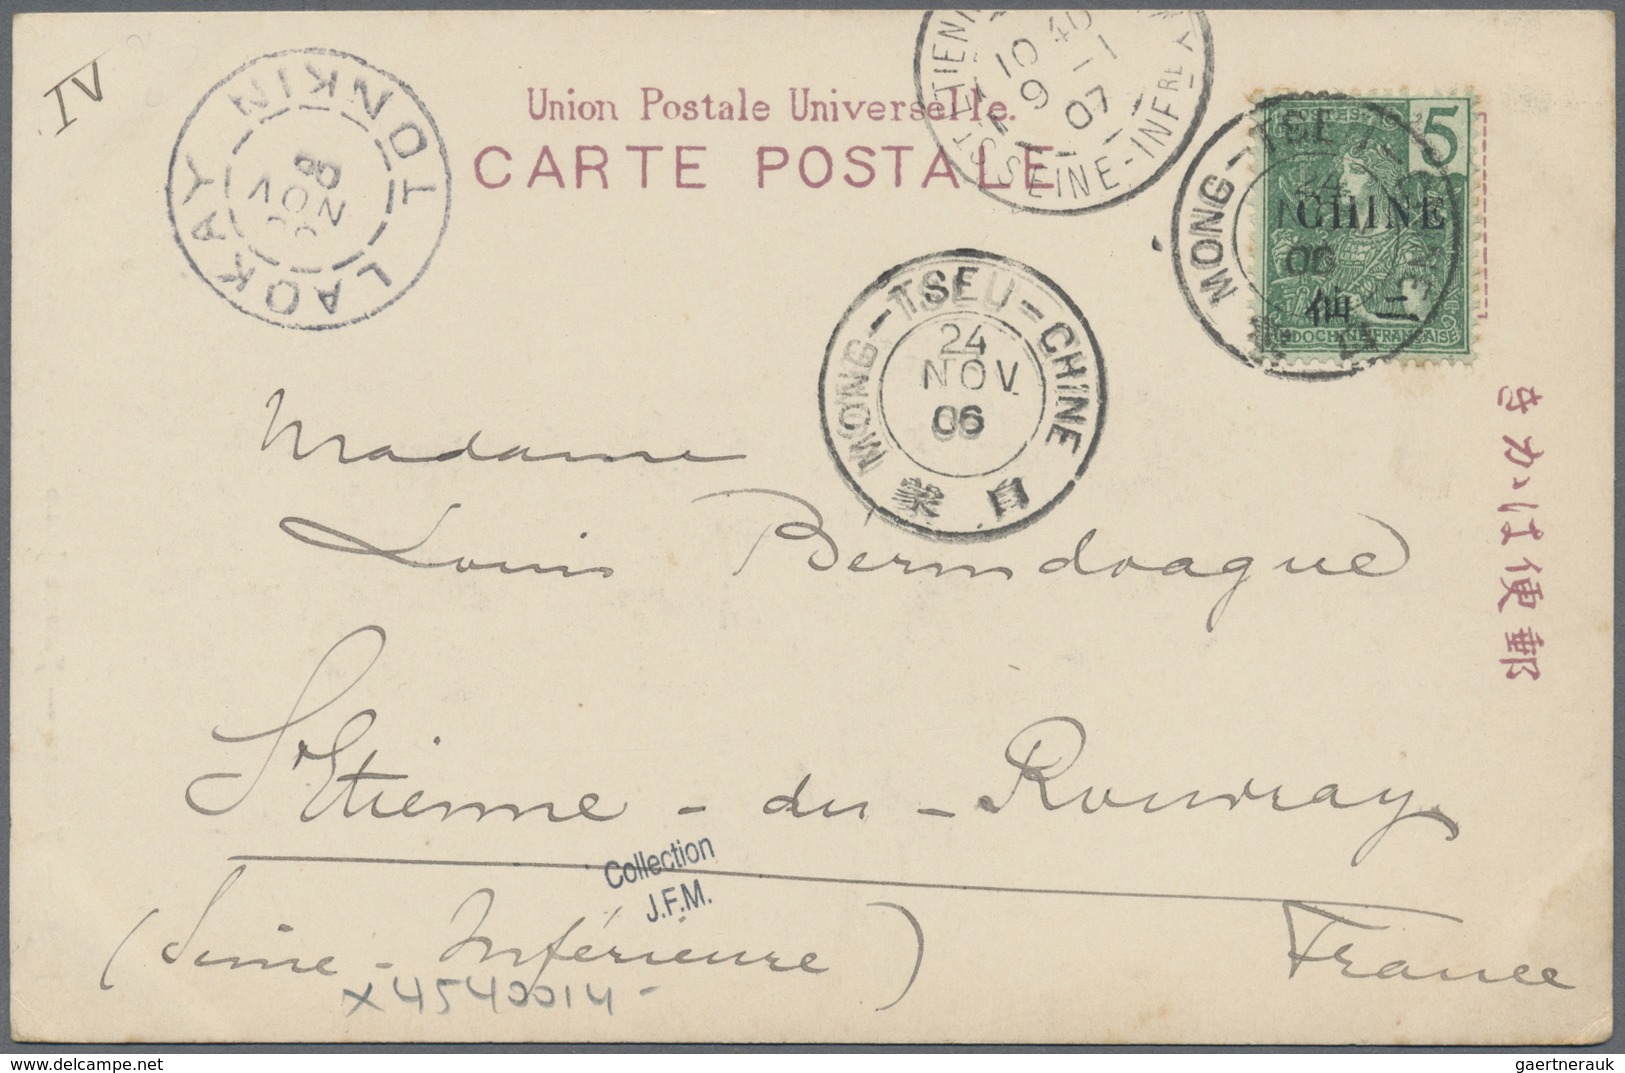 IV
LAOKAY TONKIN
Union Postale Universelle.
CARTE POSTALE
ST ETIENNE
SEINE-INFRE
10 40
9 1
07
5
CHINE
仙二
INDOCHINE FRANÇAISE
MONG-TSEU-CHINE
24
NOV
06
蒙自
MONG-TSEU-CHINE
24
きかは便郵
Madame
Louis Bermdoague
St Etienne-du-Rouvray
Collection
J.F.M.
(Seine-Inférieure) France
x4540014-
Delcampe.net
gaertnerauk